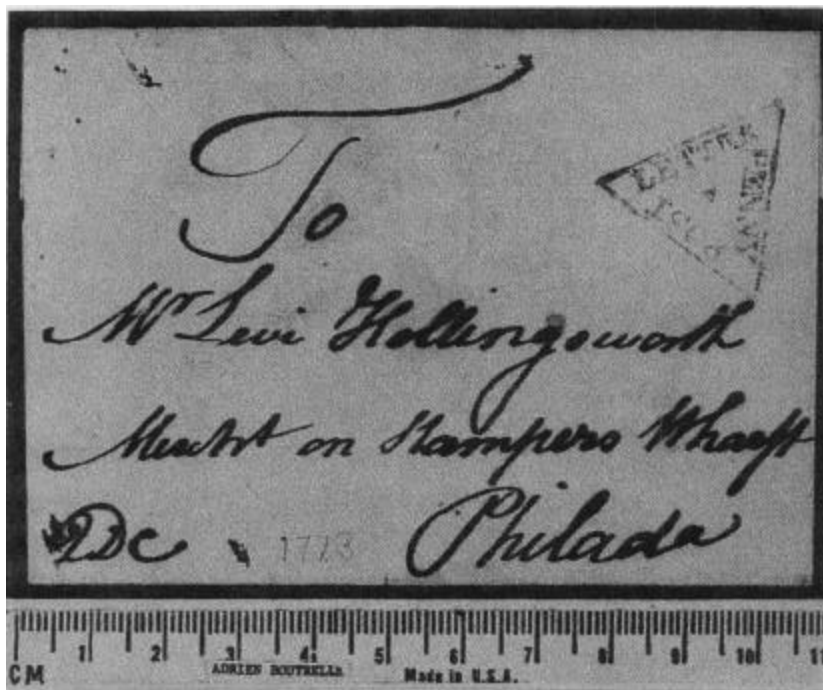 To
LETTER
Mr Levi Hollingsworth
Mercht on Stampers Wharff
Philada
1773
1 2 3 4 5 6 7 8 9 10 11
CM ADRIEN BOUTRELLE Made in U.S.A.